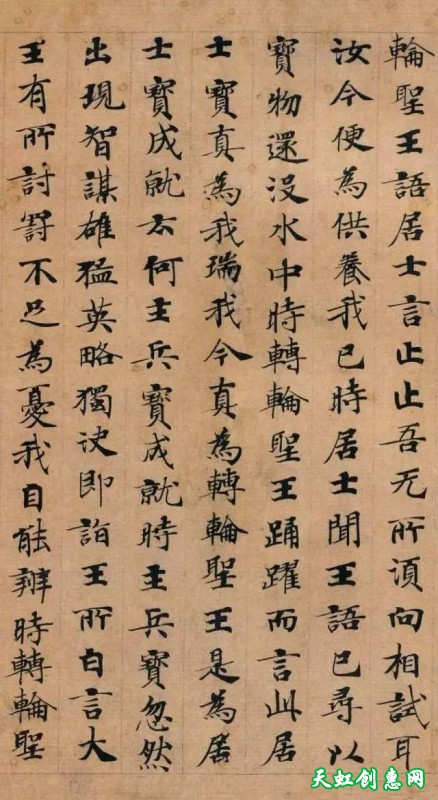 輪聖王語居士言止止吾无所湏向相試耳
汝今便為供養我已時居士聞王語已尋以
寶物還没水中時轉輪聖王踊躍而言此居
士寶真為我瑞我今真為轉輪聖王是為居
士寶成就云何主兵寶成就時主兵寶忽然
出現智謀雄猛英略獨决即詣王所白言大
王有所討罸不足為憂我自能辦時轉輪聖
天虹创惠网